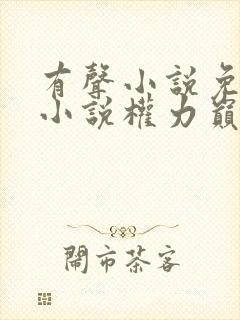 有聲小說免
小說權力巔
鬧市茶客